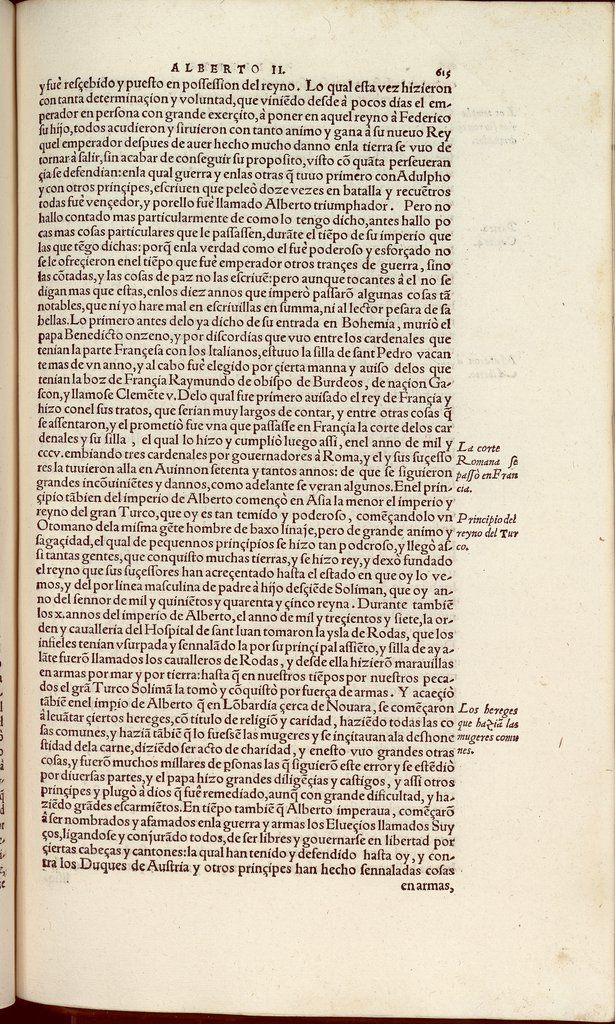 ALBERTO II. 615
y fuè resçebido y puesto en possession del reyno. Lo qual esta vez hizieron
con tanta determinaçion y voluntad, que viniẽdo desde à pocos dias el em-
perador en persona con grande exerçito, à poner en aquel reyno à Federico
su hijo, todos acudieron y siruieron con tanto animo y gana à su nueuo Rey
quel emperador despues de auer hecho mucho danno enla tierra se vuo de
tornar à salir, sin acabar de conseguir su proposito, visto cõ quãta perseueran
çia se defendian: enla qual guerra y enlas otras q̃ tuuo primero con Adulpho
y con otros prinçipes, escriuen que peleò doze vezes en batalla y recuẽtros
todas fuè vençedor, y porello fuè llamado Alberto triumphador. Pero no
hallo contado mas particularmente de como lo tengo dicho, antes hallo po
cas mas cosas particulares que le passassen, durãte el tiẽpo de su imperio que
las que tẽgo dichas: porq̃ enla verdad como el fuè poderoso y esforçado no
se le ofreçieron enel tiẽpo que fuè emperador otros trançes de guerra, sino
las cõtadas, y las cosas de paz no las escriuẽ: pero aunque tocantes à el no se
digan mas que estas, enlos diez annos que imperò passarõ algunas cosas tã
notables, que ni yo hare mal en escriuillas en summa, ni al lector pesara de sa
bellas. Lo primero antes delo ya dicho de su entrada en Bohemia, muriò el
papa Benedicto onzeno, y por discordias que vuo entre los cardenales que
tenian la parte Françesa con los Italianos, estuuo la silla de sant Pedro vacan
te mas de vn anno, y al cabo fuè elegido por çierta manna y auiso delos que
tenian la boz de Françia Raymundo de obispo de Burdeos, de naçion Ga-
scon, y llamose Clemẽte v. Delo qual fue primero auisado el rey de Françia y
hizo conel sus tratos, que serian muy largos de contar, y entre otras cosas q̃
se assentaron, y el prometiò fue vna que passasse en Françia la corte delos car
denales y su silla, el qual lo hizo y cumpliò luego assi, enel anno de mil y
cccv. embiando tres cardenales por gouernadores à Roma, y el y sus suçesso
res la tuuieron alla en Auinnon setenta y tantos annos: de que se siguieron
grandes incõuiniẽtes y dannos, como adelante se veran algunos. Enel prin-
çipio tãbien del imperio de Alberto començò en Asia la menor el imperio y
reyno del gran Turco, que oy es tan temido y poderoso, comẽçandolo vn
Otomano dela misma gẽte hombre de baxo linaje, pero de grande animo y
sagaçidad, el qual de pequennos prinçipios se hizo tan poderoso, y llegò as-
si tantas gentes, que conquisto muchas tierras, y se hizo rey, y dexò fundado
el reyno que sus suçessores han acreçentado hasta el estado en que oy lo ve-
mos, y del por linea masculina de padre à hijo desçiẽde Soliman, que oy an-
no del sennor de mil y quiniẽtos y quarenta y çinco reyna. Durante tambiẽ
los x. annos del imperio de Alberto, el anno de mil y treçientos y siete, la or-
den y cauallería del Hospital de sant Iuan tomaron la ysla de Rodas, que los
infieles tenian vsurpada y sennalãdo la por su prinçipal assiẽto, y silla de ay a-
lãte fuerõ llamados los caualleros de Rodas, y desde ella hizierõ marauillas
en armas por mar y por tierra: hasta q̃ en nuestros tiẽpos por nuestros peca-
dos el grã Turco Solimã la tomò y cõquistò por fuerça de armas. Y acaeçiò
tãbiẽ enel impio de Alberto q̃ en Lõbardia çerca de Nouara, se comẽçaron
à leuãtar çiertos hereges, cõ titulo de religiõ y caridad, haziẽdo todas las co
sas comunes, y haziã tãbiẽ q̃ lo fuessẽ las mugeres y se inçitauan ala deshone
stidad dela carne, diziẽdo ser acto de charidad, y enesto vuo grandes otras
cosas, y fuerõ muchos millares de psonas las q̃ siguierõ este error y se estẽdiò
por diuersas partes, y el papa hizo grandes diligẽçias y castigos, y assi otros
prinçipes y plugò à dios q̃ fuè remediado, aunq̃ con grande dificultad, y ha-
ziẽdo grãdes escarmiẽtos. En tiẽpo tambiẽ q̃ Alberto imperaua, comẽçarõ
à ser nombrados y afamados enla guerra y armas los Elueçios llamados Suy
ços, ligandose y conjurãdo todos, de ser libres y gouernarse en libertad por
çiertas cabeças y cantones: la qual han tenido y defendido hasta oy, y con-
tra los Duques de Austria y otros prinçipes han hecho sennaladas cosas
en armas,
La corte
Romana se
passò en Fran
cia.
Principio del
reyno del Tur
co.
Los hereges
que haziã las
mugeres comu
nes.